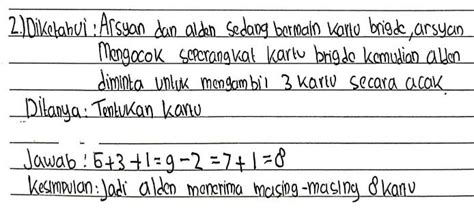 2.) Diketahui : Arsyan dan alden sedang bermain kartu brigde, arsyan
Mengocok seperangkat kartu brigde kemudian alden
diminta untuk mengambil 3 kartu secara acak.
Ditanya : Tentukan kartu
Jawab : 5+3+1=9-2=7+1=8
Kesimpulan : Jadi alden menerima masing-masing 8 kartu